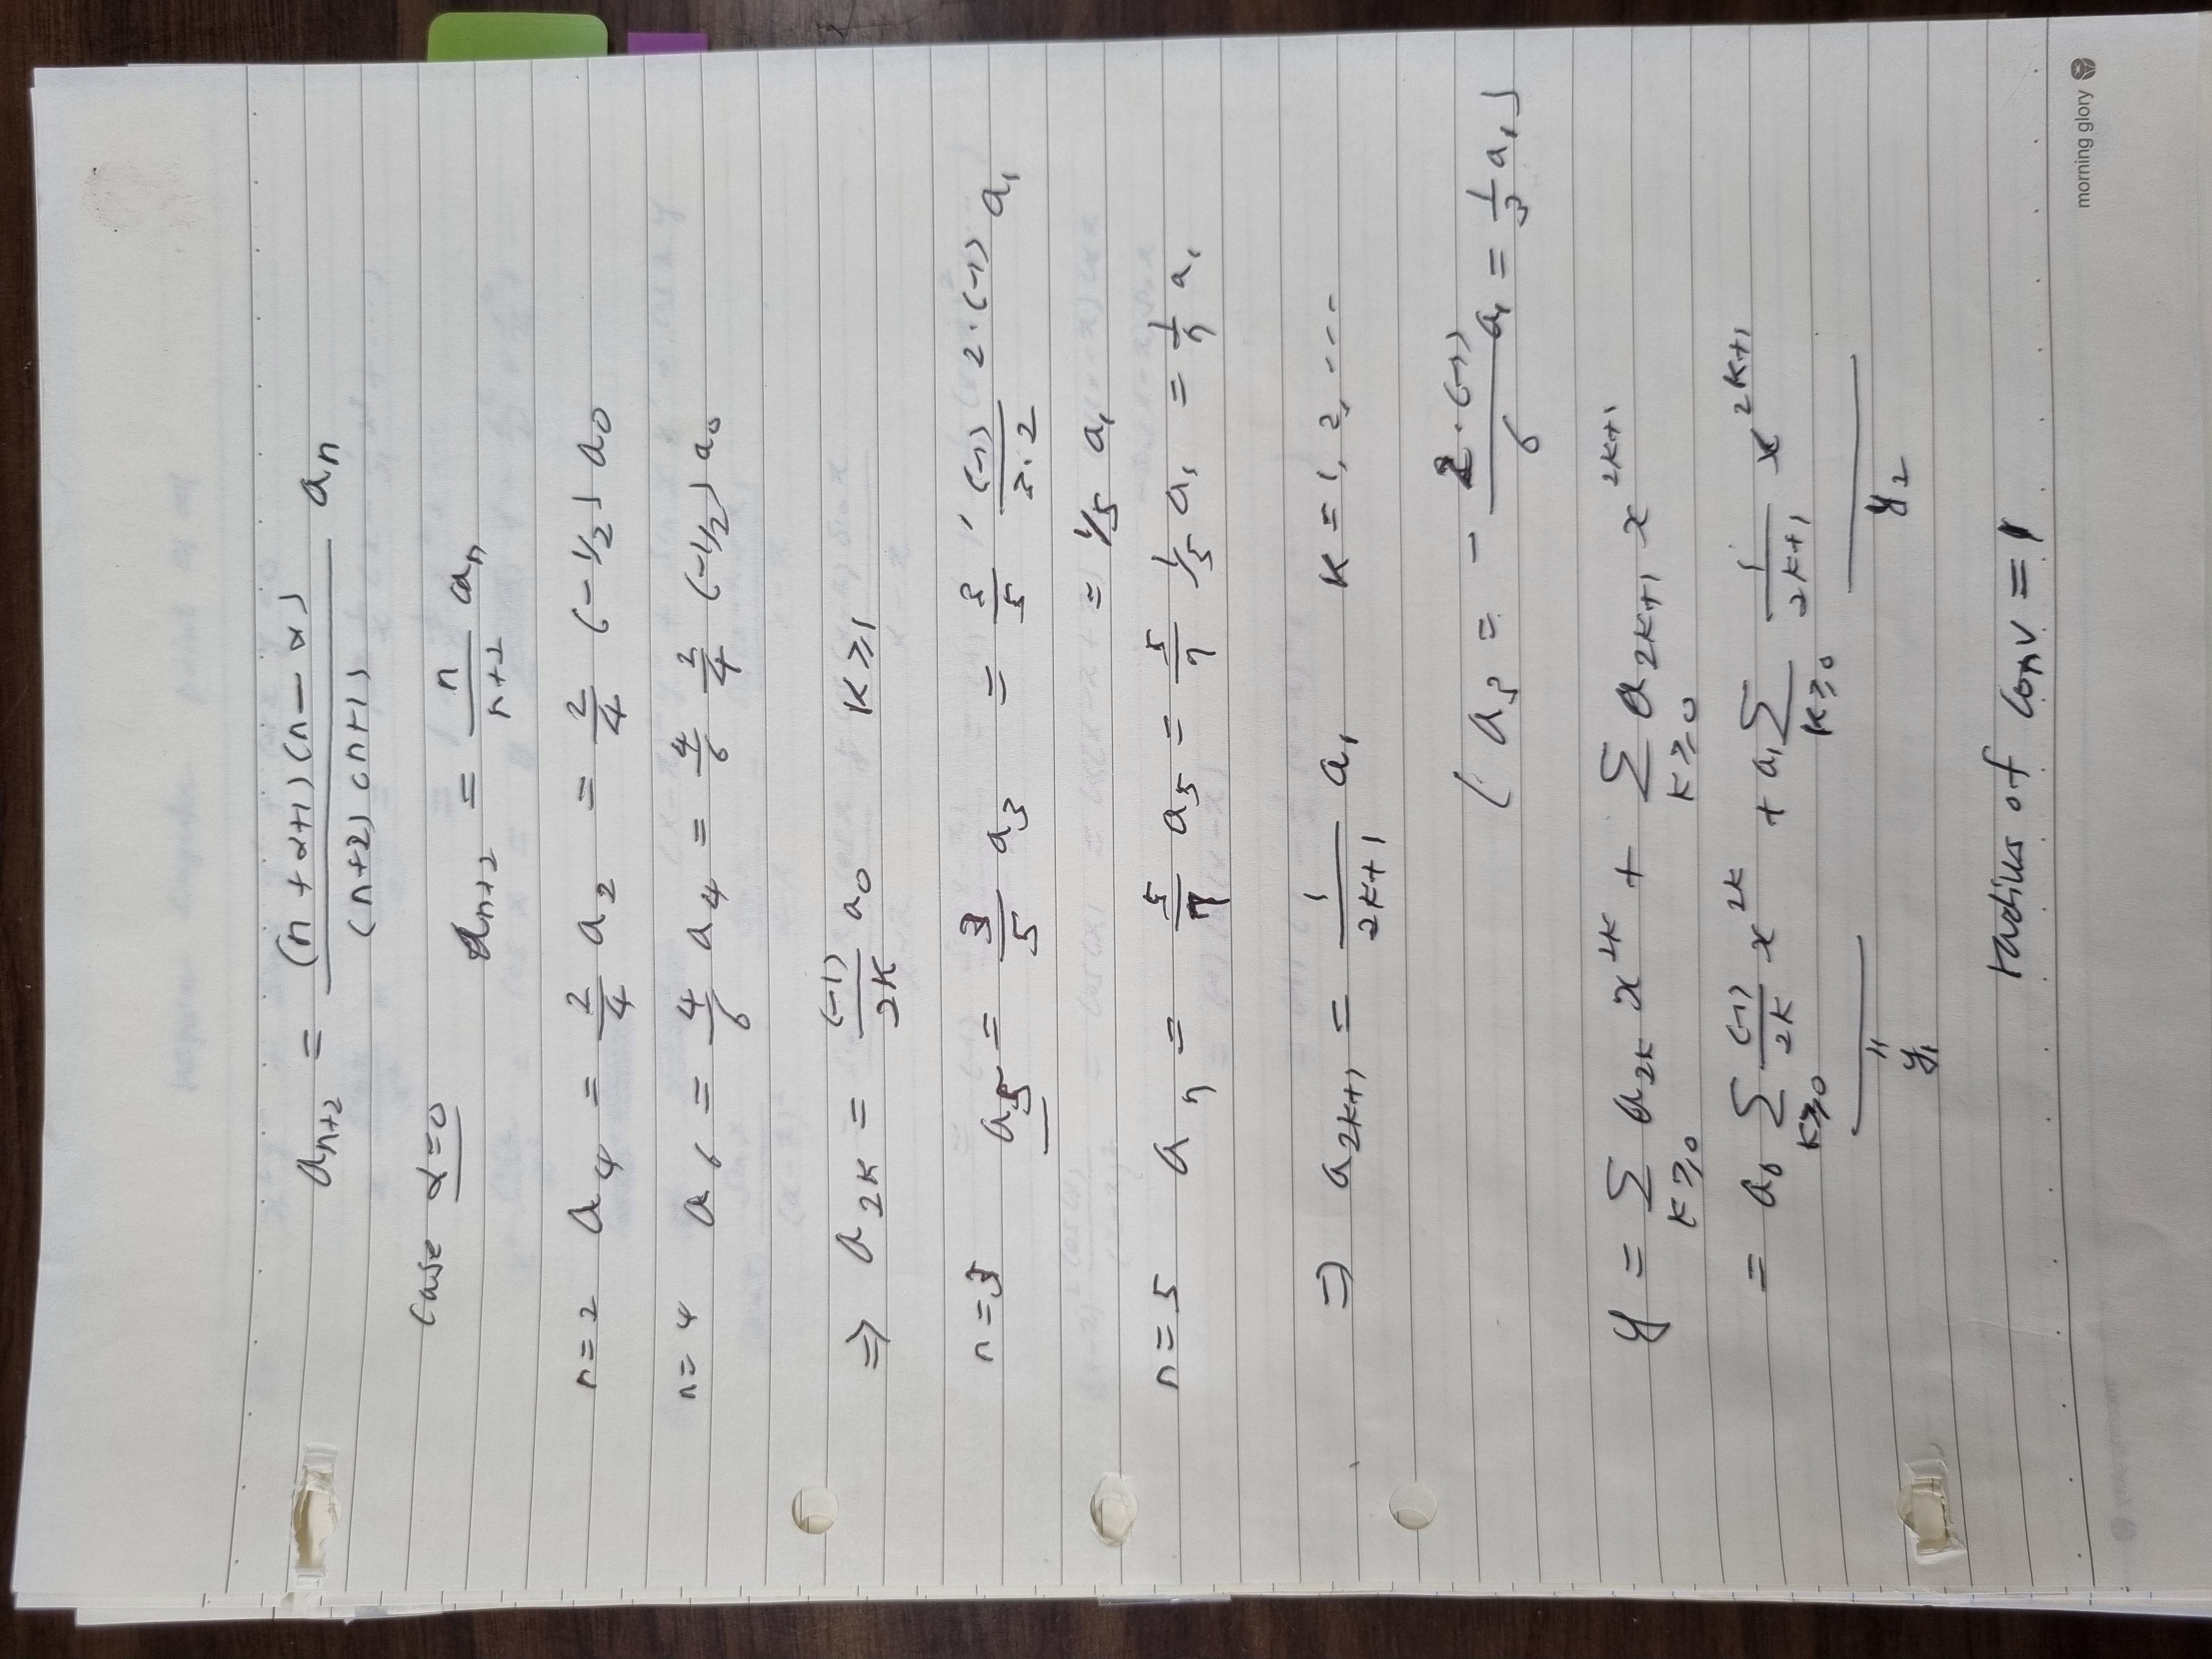 a_{n+2} = \frac{(n+α+1)(n-α)}{(n+2)(n+1)} a_n
case α=0
a_{n+2} = \frac{n}{n+2} a_n
n=2 a_4 = \frac{2}{4} a_2 = \frac{2}{4} (-1/2) a_0
n=4 a_6 = \frac{4}{6} a_4 = \frac{4}{6} \frac{2}{4} (-1/2) a_0
⇒ a_{2K} = \frac{(-1)}{2K} a_0 K≥1
n=3 a_5 = \frac{3}{5} a_3 = \frac{3}{5} · \frac{(-1)}{3·2} 2·(-1) a_1
= 1/5 a_1
n=5 a_7 = \frac{5}{7} a_5 = \frac{5}{7} 1/5 a_1 = \frac{1}{7} a_1
⇒ a_{2K+1} = \frac{1}{2K+1} a_1 K=1, 2, ---
( a_3 = - \frac{2·(-1)}{6} a_1 = \frac{1}{3} a_1 )
y = Σ_{K≥0} a_{2K} x^{2K} + Σ_{K≥0} a_{2K+1} x^{2K+1}
= a_0 Σ_{K≥0} \frac{(-1)}{2K} x^{2K} + a_1 Σ_{K≥0} \frac{1}{2K+1} x^{2K+1}
"
y_1 y_2
radius of conv = 1
morning glory